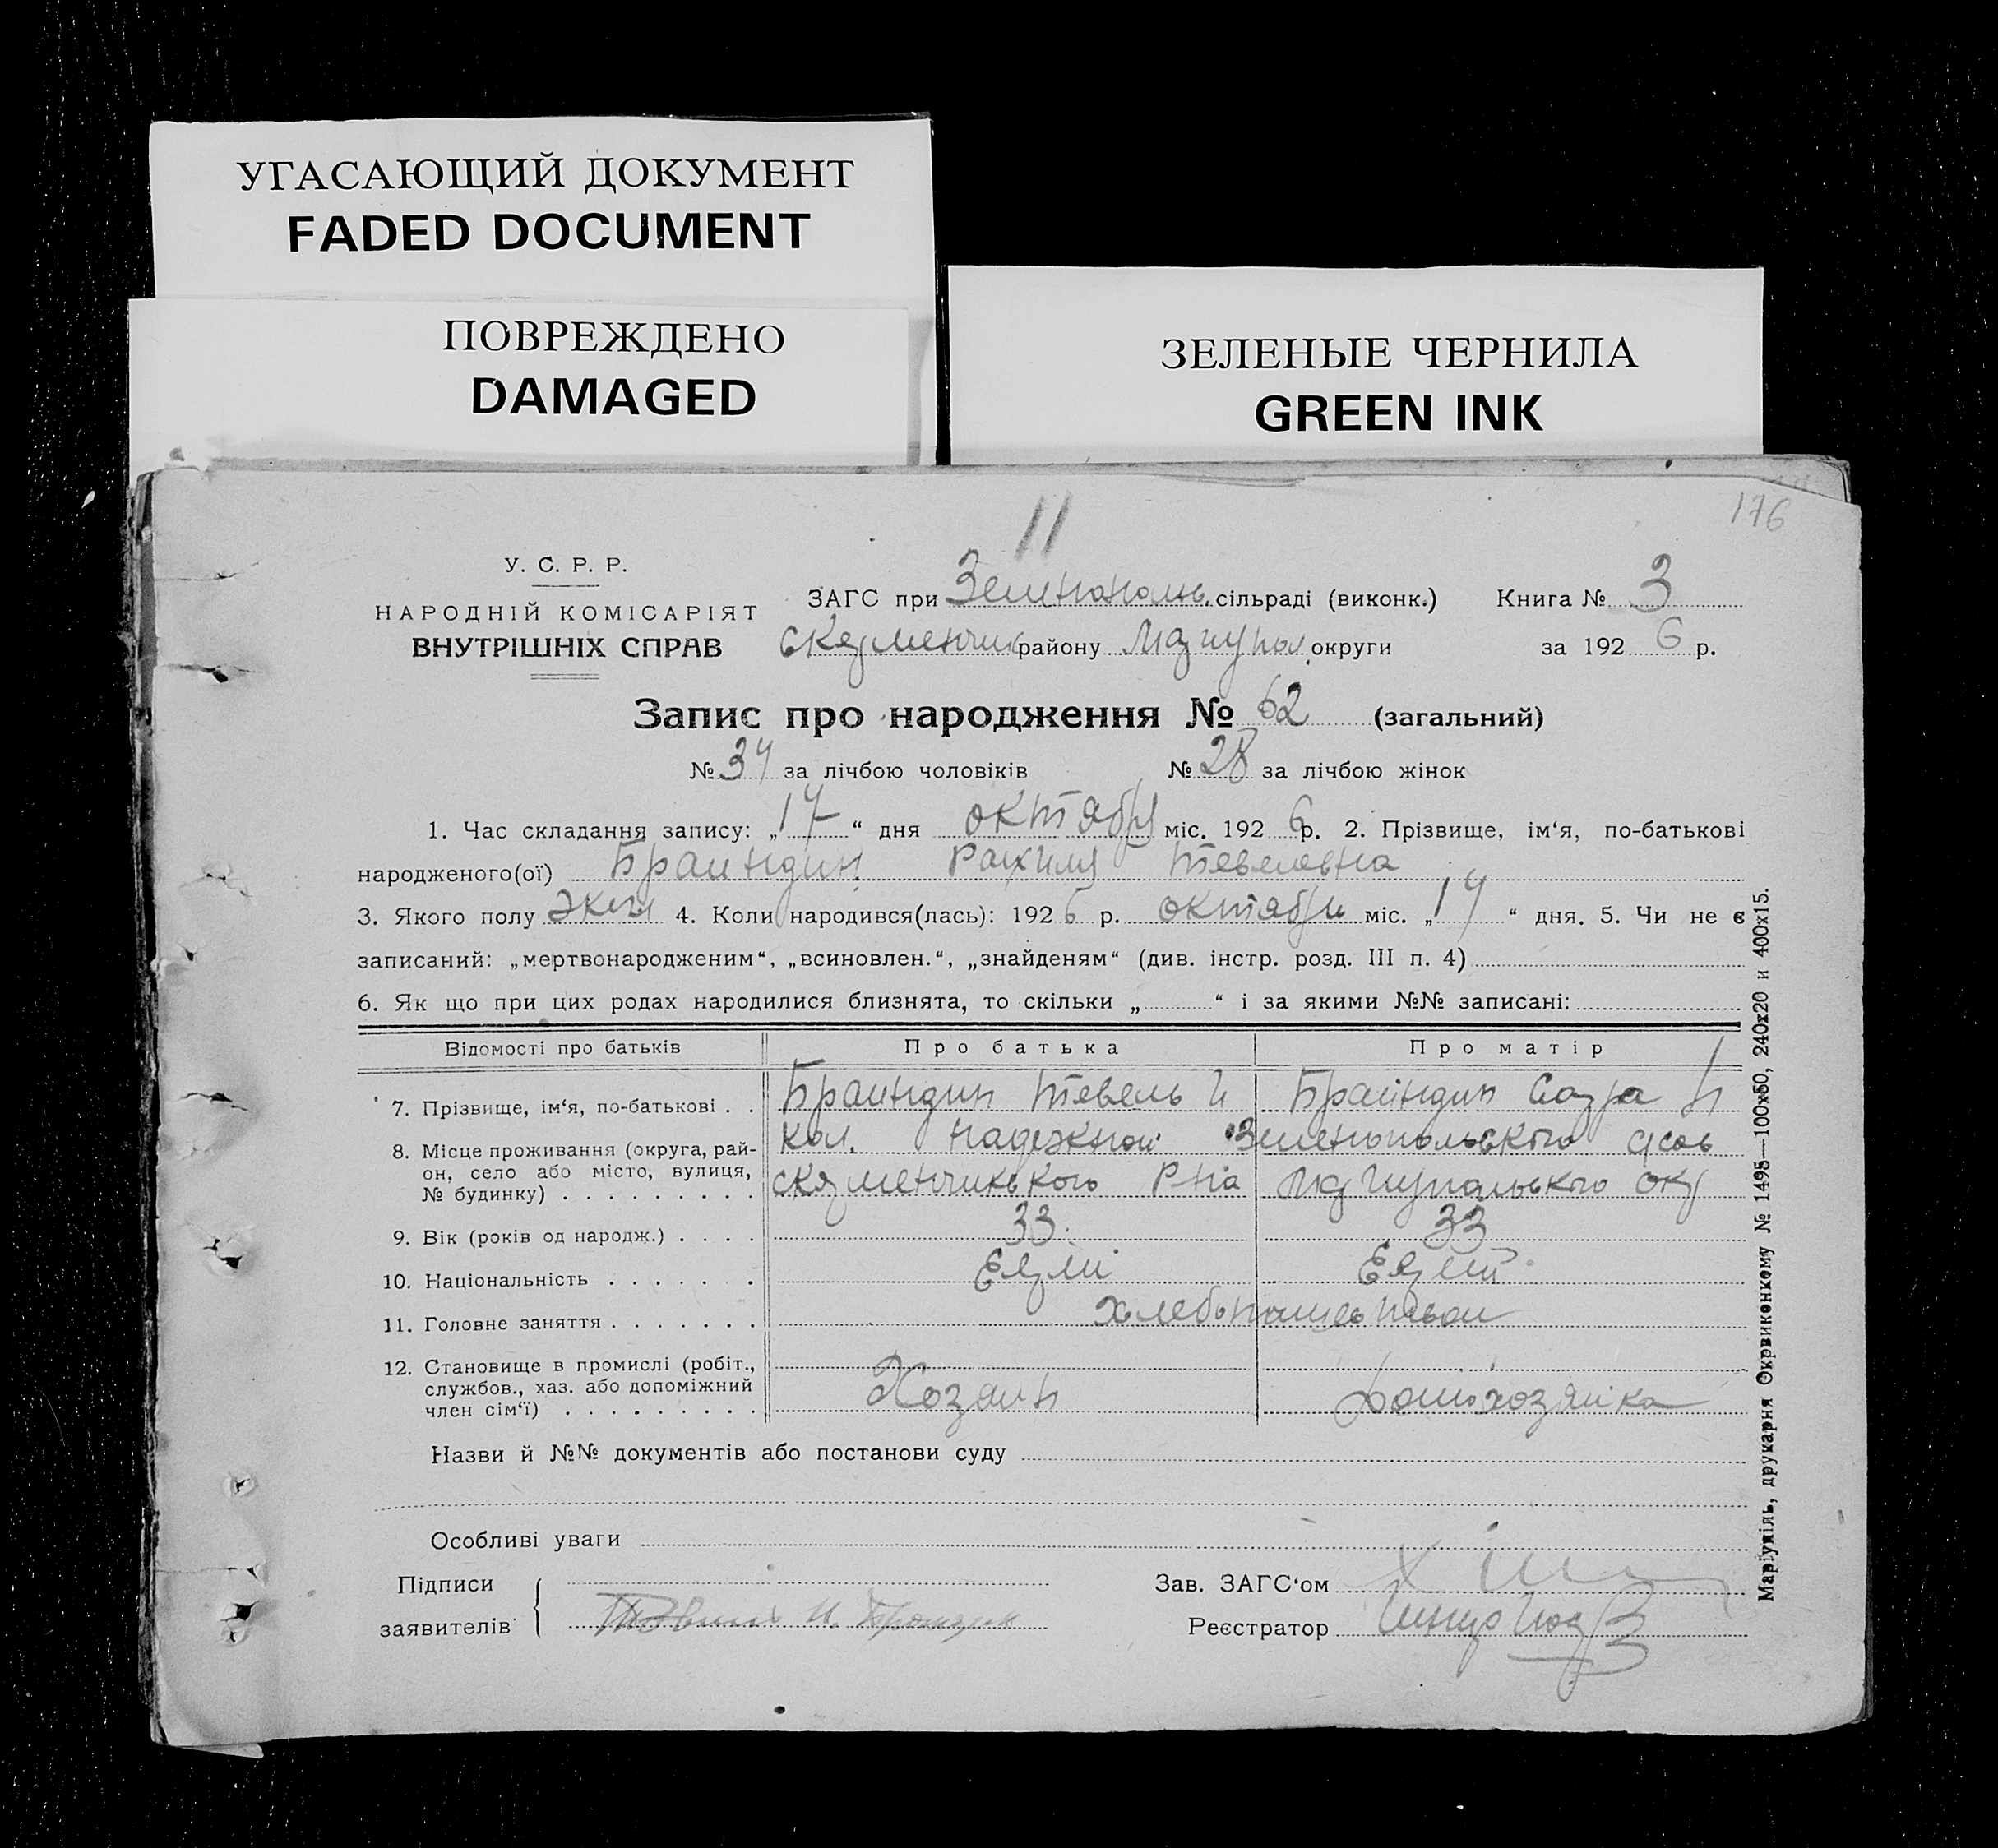 УГАСАЮЩИЙ ДОКУМЕНТ
FADED DOCUMENT
ПОВРЕЖДЕНО
DAMAGED
ЗЕЛЕНЫЕ ЧЕРНИЛА
GREEN INK
176
11
У. С. Р. Р.
НАРОДНІЙ КОМІСАРІЯТ
ВНУТРІШНІХ СПРАВ
ЗАГС при сільраді (виконк.) Книга № 3
району округи за 192 6 р.
Запис про народження № 62 (загальний)
№ 34 за лічбою чоловіків № 28 за лічбою жінок
1. Час складання запису: „17“ дня октября міс. 192 6 р. 2. Прізвище, ім‘я, по-батькові
народженого(ої) Браиндин Рахиля Тевелевна
3. Якого полу жен 4. Коли народився(лась): 192 6 р. октября міс. „14“ дня. 5. Чи не є
записаний: „мертвонародженим“, „всиновлен.“, „знайденям“ (див. інстр. розд. III п. 4)
6. Як що при цих родах народилися близнята, то скільки „ “ і за якими №№ записані:
Відомості про батьків Про батька Про матір
7. Прізвище, ім‘я, по-батькові . . Браиндин Тевель И Браиндин Сарра
8. Місце проживання (округа, рай- кол. Надежной Зеленопольського
он, село або місто, вулиця,
№ будинку) . . . . . . . . . Р-на
9. Вік (років од народж.) . . . . 33 33
10. Національність . . . . . . . Еврей
11. Головне заняття . . . . . . .
12. Становище в промислі (робіт.,
службов., хаз. або допоміжний Хозяин Домохозяйка
член сім‘ї) . . . . . . . . .
Назви й №№ документів або постанови суду
Особливі уваги
Підписи
заявителів
Зав. ЗАГС‘ом
Реєстратор
Маріупіль, друкарня Окрвиконкому № 1495—100x50, 240x20 и 400x15.